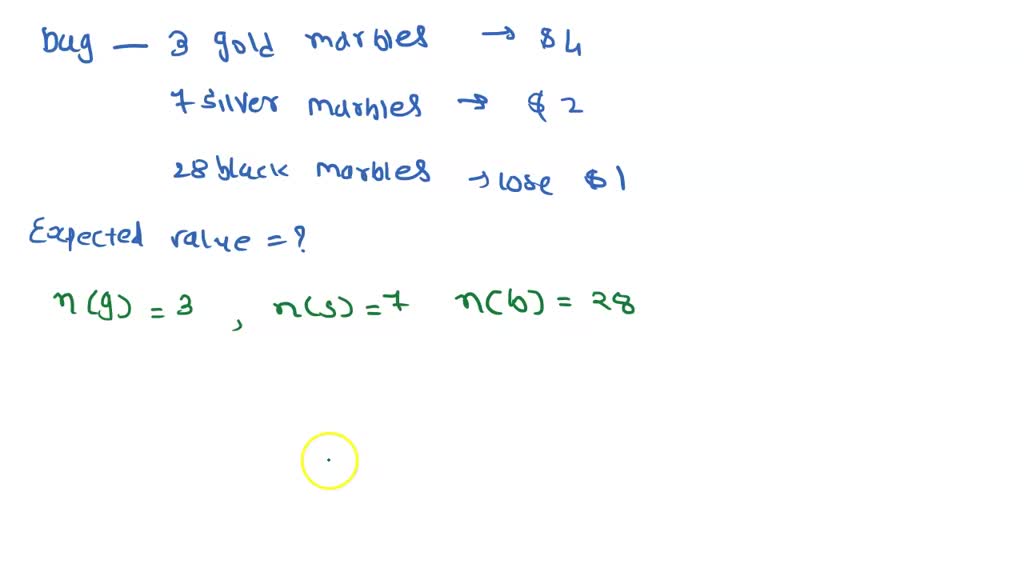 bag — 3 gold marbles → $4
7 silver marbles → $2
28 black marbles → lose $1
Expected value = ?
n(g) = 3 , n(s) = 7 n(b) = 28